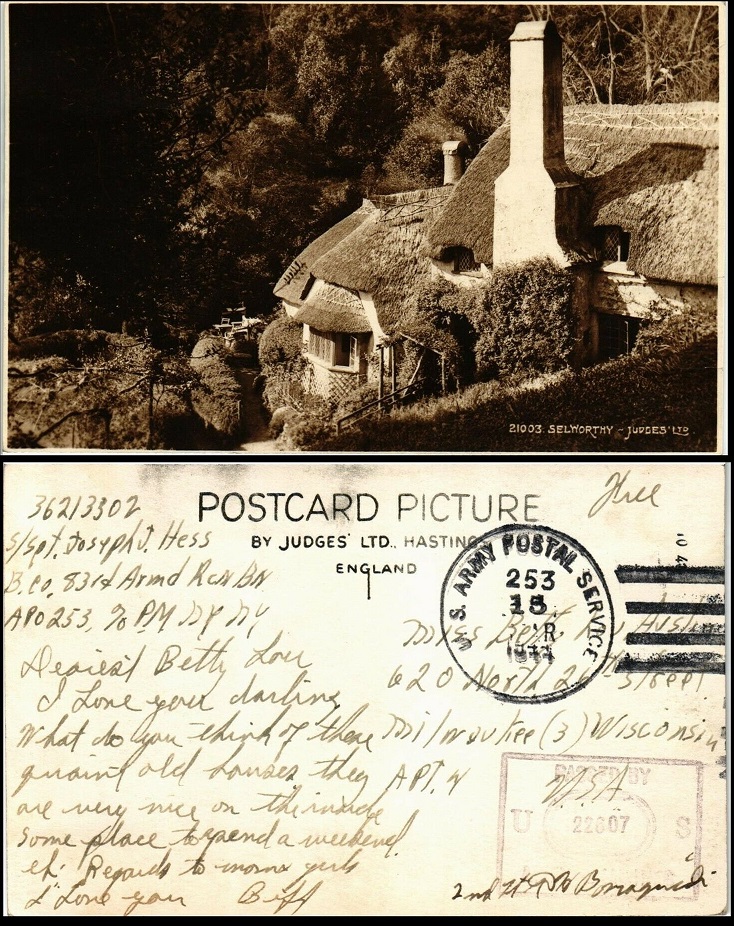 21003. SELWORTHY - JUDGES' LTD
POSTCARD PICTURE
BY JUDGES' LTD., HASTINGS
ENGLAND
Free
36213302
S/Sgt. Joseph J. Hess
B. Co. 83rd Armd Rcn Bn
APO 253, % P.M NY NY
Dearest Betty Lou
I Love you darling
What do you think of these
quaint old houses they
are very nice on the inside
some place to spend a weekend
eh. Regards to mom
I Love you
U.S. ARMY POSTAL SERVICE
253
15
1944
Miss Betty Lou
620 North 26th Street
Milwaukee (3) Wisconsin
APT. 4
U.S.A.
PASSED BY
U 22607 S
2nd Lt